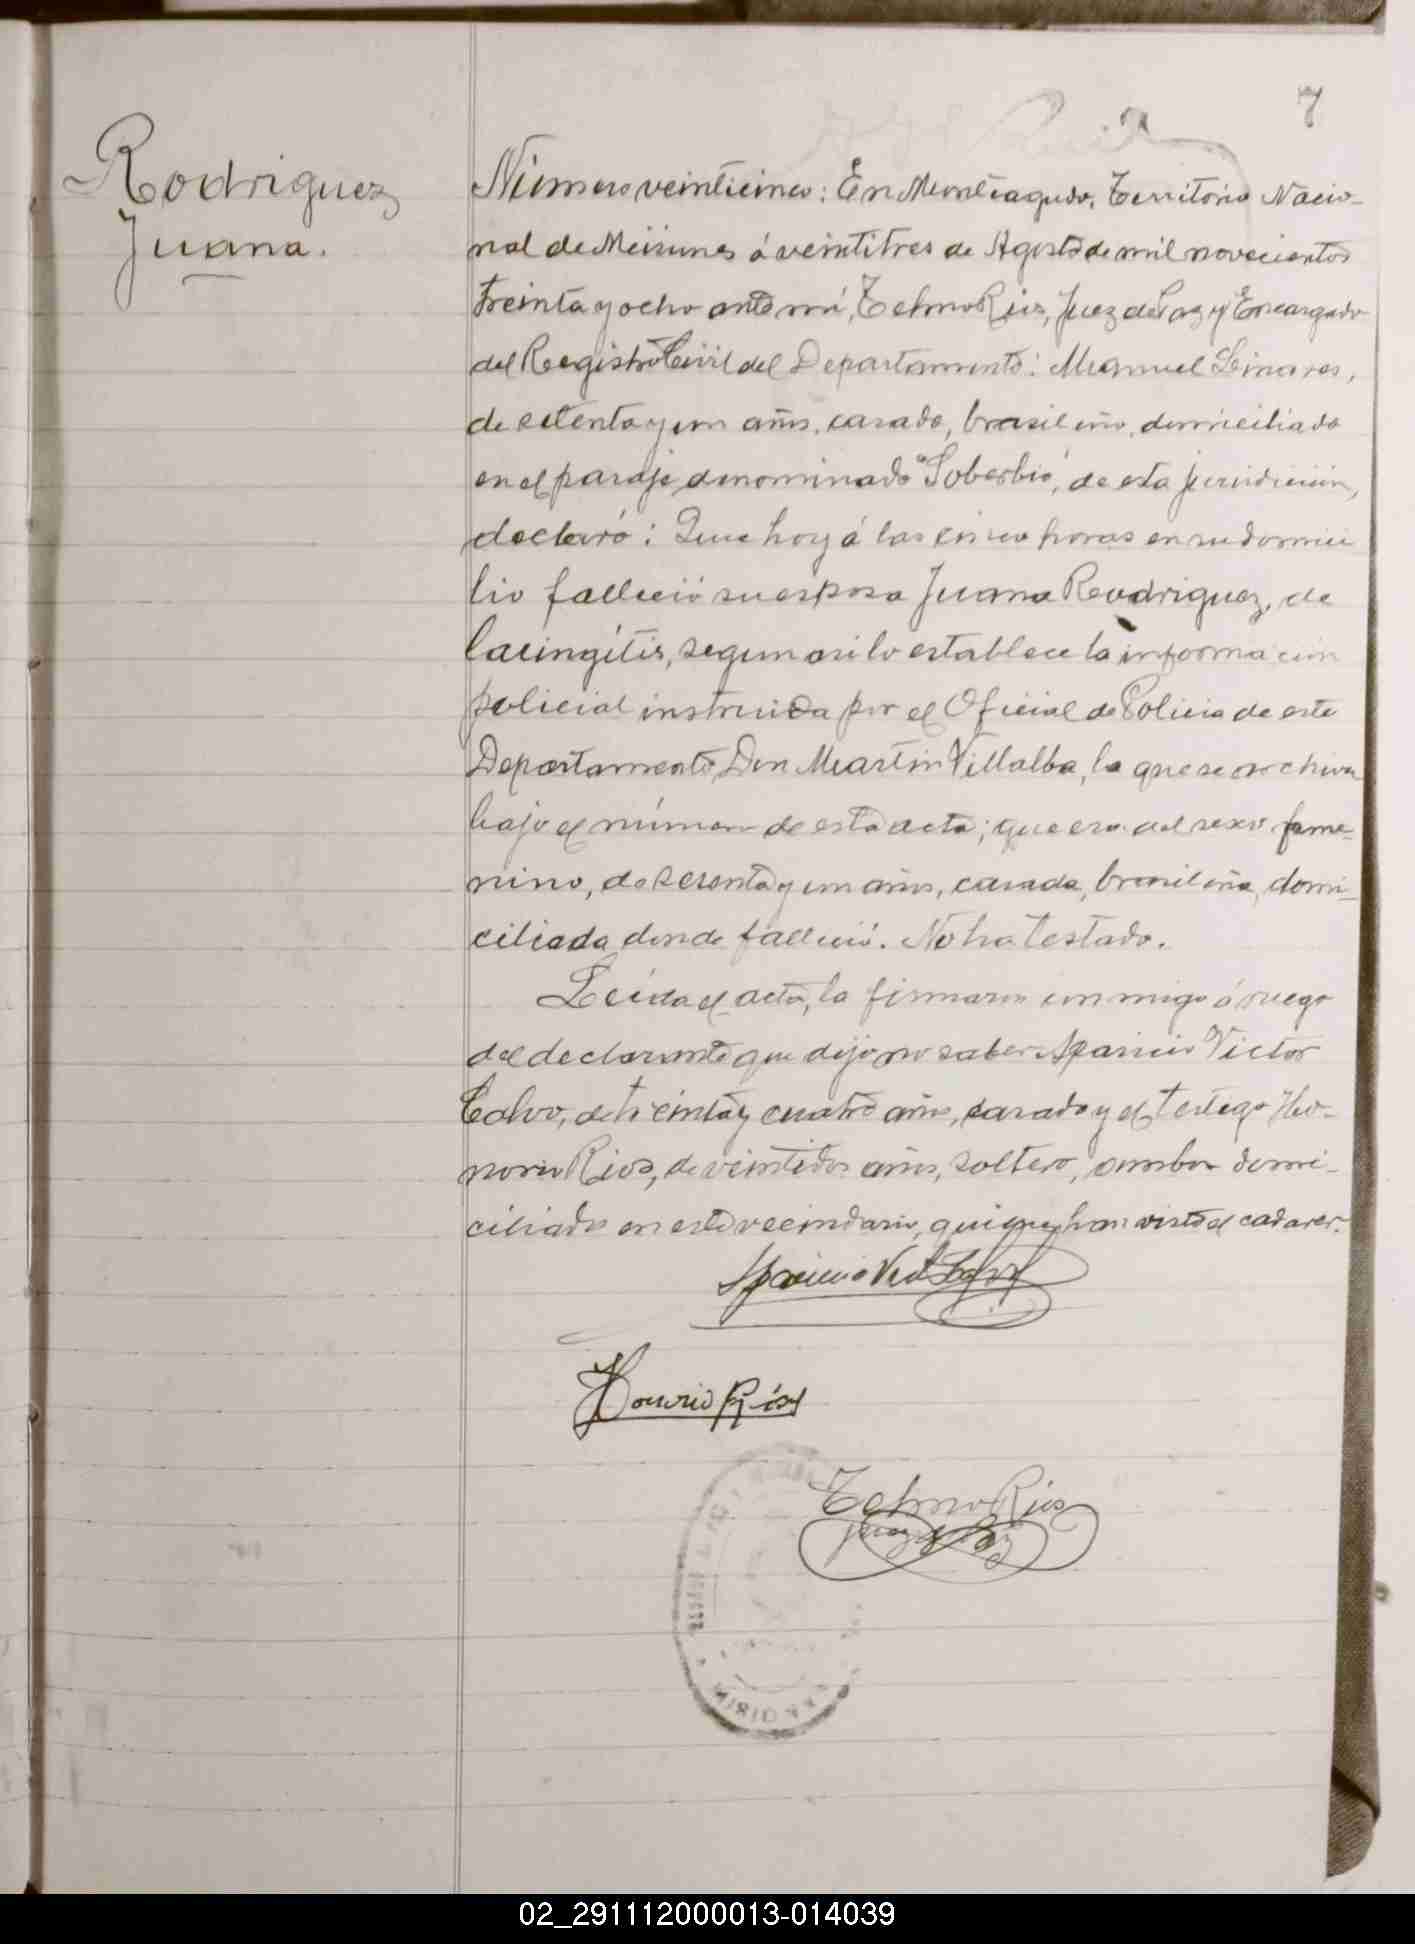 7
Rodriguez
Juana.
Número veinticinco: En Monteagudo, Territorio Nacio-
nal de Misiones á veintitres de Agosto de mil novecientos
treinta y ocho ante mí, Telmo Rios, Juez de Paz y Encargado
del Registro Civil del Departamento: Manuel Linares,
de setenta y un años, casado, brasileño, domiciliado
en el paraje denominado "Soberbio", de esta jurisdicción,
declaró: Que hoy á las cinco horas en su domici
lio falleció su esposa Juana Rodriguez, de
laringitis, segun asi lo establece la informacion
policial instruida por el Oficial de Policia de este
Departamento, Don Martin Villalba, la que se archiva
bajo el número de esta acta; que era del sexo feme-
nino, de sesenta y un años, casada, brasileña, domi-
ciliada donde falleció. No ha testado.
Leída el acta, la firmaron conmigo á ruego
del declarante que dijo no saber Aparicio Victor
Calvo, de treinta y cuatro años, casado y el testigo Ho-
norio Rios, de veintidos años, soltero, ambos domi-
ciliados en este vecindario, quienes han visto el cadaver.
Aparicio Vict
Honorio Ríos
Telmo Rios
Juez de Paz
02_291112000013-014039